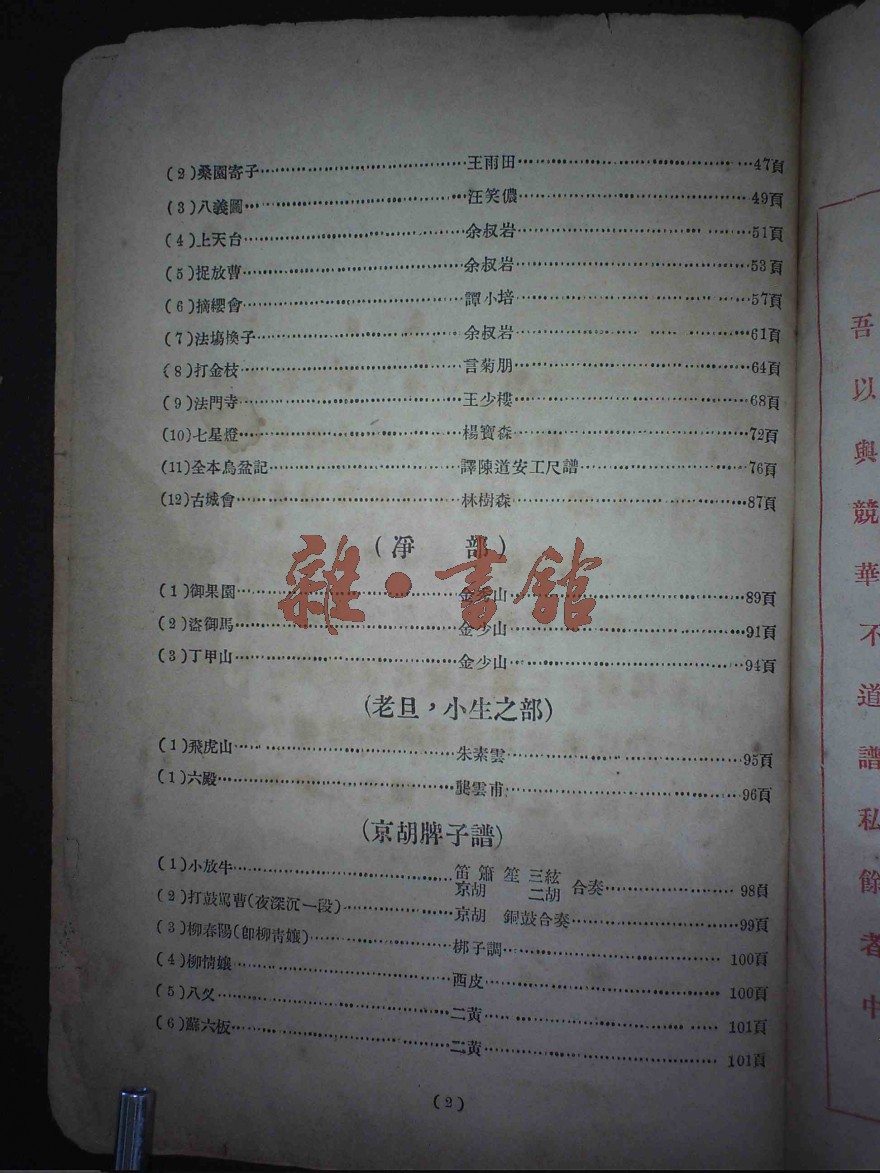 (2)桑園寄子王雨田47頁
(3)八義圖汪笑儂49頁
(4)上天台余叔岩51頁
(5)捉放曹余叔岩53頁
(6)摘纓會譚小培57頁
(7)法塲換子余叔岩61頁
(8)打金枝言菊朋64頁
(9)法門寺王少樓68頁
(10)七星燈楊寶森72頁
(11)全本烏盆記譯陳道安工尺譜76頁
(12)古城會林樹森87頁
(淨 部)
(1)御果園金秀山89頁
(2)盜御馬金少山91頁
(3)丁甲山金少山94頁
雜·書館
(老旦，小生之部)
(1)飛虎山朱素雲95頁
(1)六殿龔雲甫96頁
(京胡牌子譜)
(1)小放牛笛 簫 笙 三絃 京胡 二胡 合奏98頁
(2)打鼓罵曹(夜深沉一段)京胡 銅鼓合奏99頁
(3)柳春陽(卽柳靑孃)梆子調100頁
(4)柳情孃西皮100頁
(5)八叉二黃101頁
(6)蘇六板二黃101頁
(2)
吾以與競華不道譜私餘者中